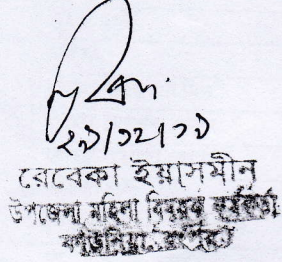 ২৯/১২/১৯
রেবেকা ইয়াসমীন
উপজেলা মহিলা বিষয়ক কর্মকর্তা